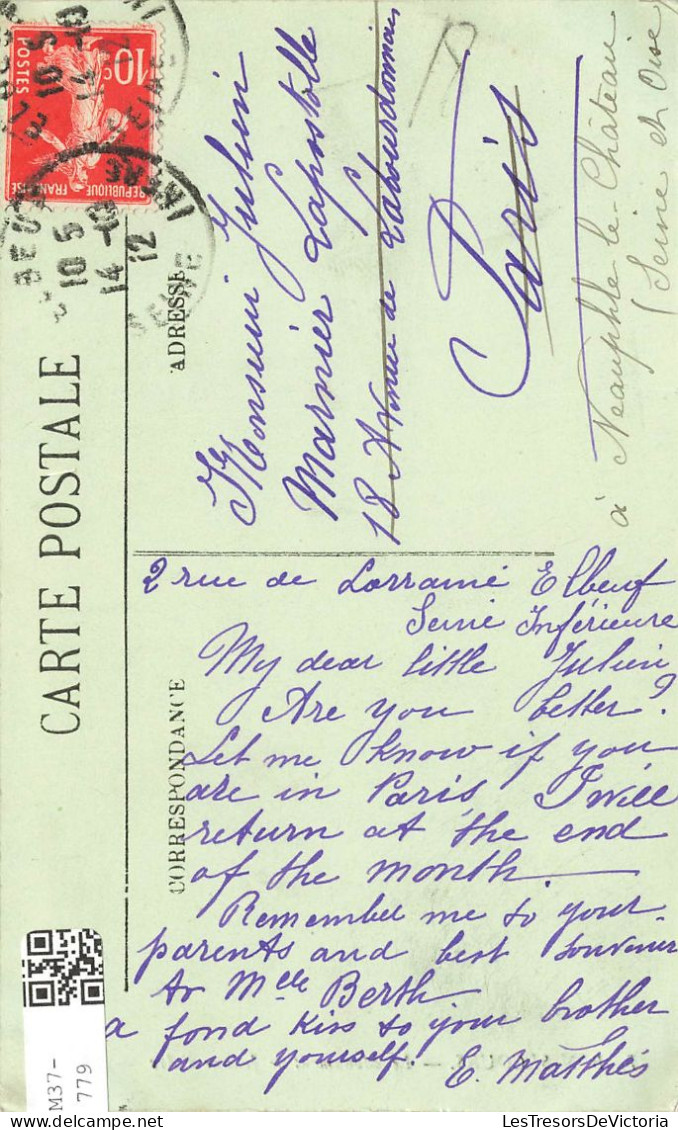 CARTE POSTALE
ADRESSE
CORRESPONDANCE
10c
POSTES
REPUBLIQUE FRANÇAISE
10 5
14 - 10
12
Monsieur Julien
Marnier Lapostolle
18 Avenue de Labourdonnais
Paris
à Neauphle-le-Château
(Seine et Oise)
2 rue de Lorraine Elbeuf
Seine Inférieure
My dear little Julien
Are you better?
Let me know if you
are in Paris, I will
return at the end
of the month.
Remember me to your
parents and best souvenir
to Melle Berth
a fond kiss to your brother
and yourself. E. Matthès
M37-
779
LesTresorsDeVictoria.com